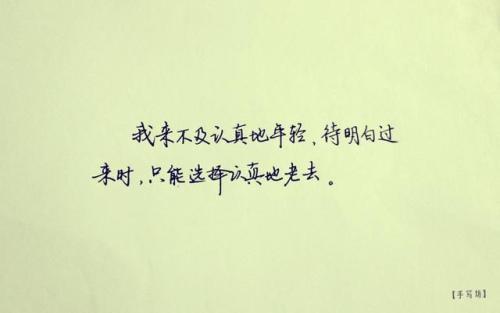 我来不及认真地年轻，待明白过
来时，只能选择认真地老去。
【手写馆】